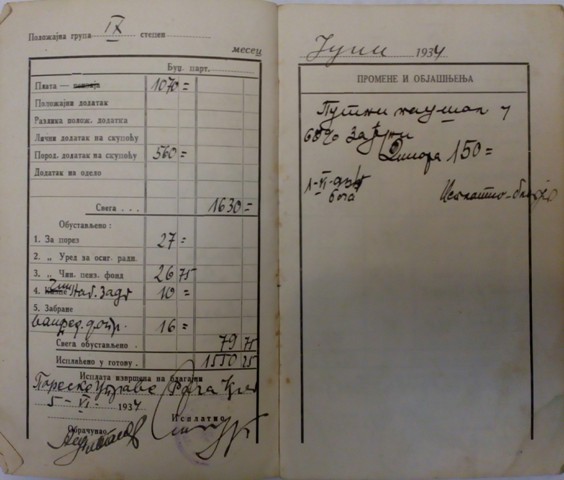 Положајна група IX степен
месец
Буџ. парт.
Плата — 1070 =
Положајни додатак
Разлика полож. додатка
Лични додатак на скупоћу
Пород. додатак на скупоћу 560 =
Додатак на одело
Свега . . . 1630 =
Обустављено :
1. За порез 27 =
2. „ Уред за осиг. радн.
3. „ Чин. пенз. фонд 26 75
4. Наб. задр. 10 =
5. Забране
16 =
Свега обустављено . 79 75
Исплаћено у готову . 1550 25
Исплата извршена на благајни
Пореске управе Рача
5 - VI - 1934
Обрачунао Исплатио
Јуни 1934
ПРОМЕНЕ И ОБЈАШЊЕЊА
Путни паушал у
60% за јуни
Динара 150 =
1-VI-934
Исплатио